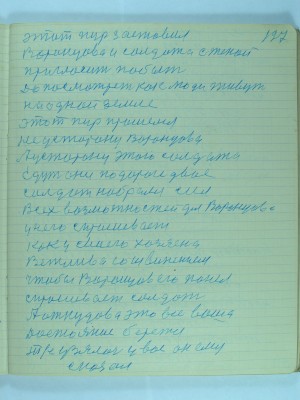 127
этот пир заставил
Воронцова и солдата с женой
пригласит побыт
Да посмотрет как люди живут
на одной земле
этот пир пришелся
Не устарону Воронцова
А устарону этого солдата
едут они по дороге двое
солдат набрался
Всех возможностей для Воронцова
унего спрашивает
Как у своего хозяена
Вежлива со
чтобы Воронцов его понел
спрашивает солдат
А откудова это все ваша
достояние
у вас он ему
сказал